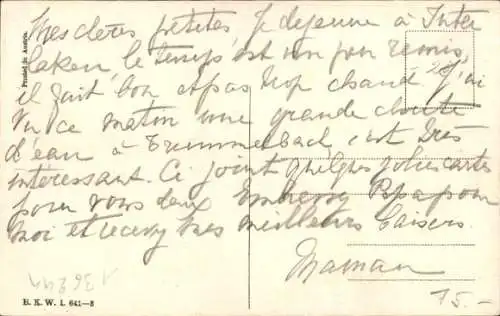 Mes chères petites Je dejeune à Inter
laken le temps s'est un peu remis,
il fait bon et pas trop chaud J'ai
vu ce matin une grande chute
d'eau à Trummelbach c'est très
intéressant. Ci joint quelques jolies cartes
pour vous deux Embrassez Papa pour
moi et recevez mes meilleurs baisers
Maman
Printed in Austria.
B. K. W. I. 641—8
15.-